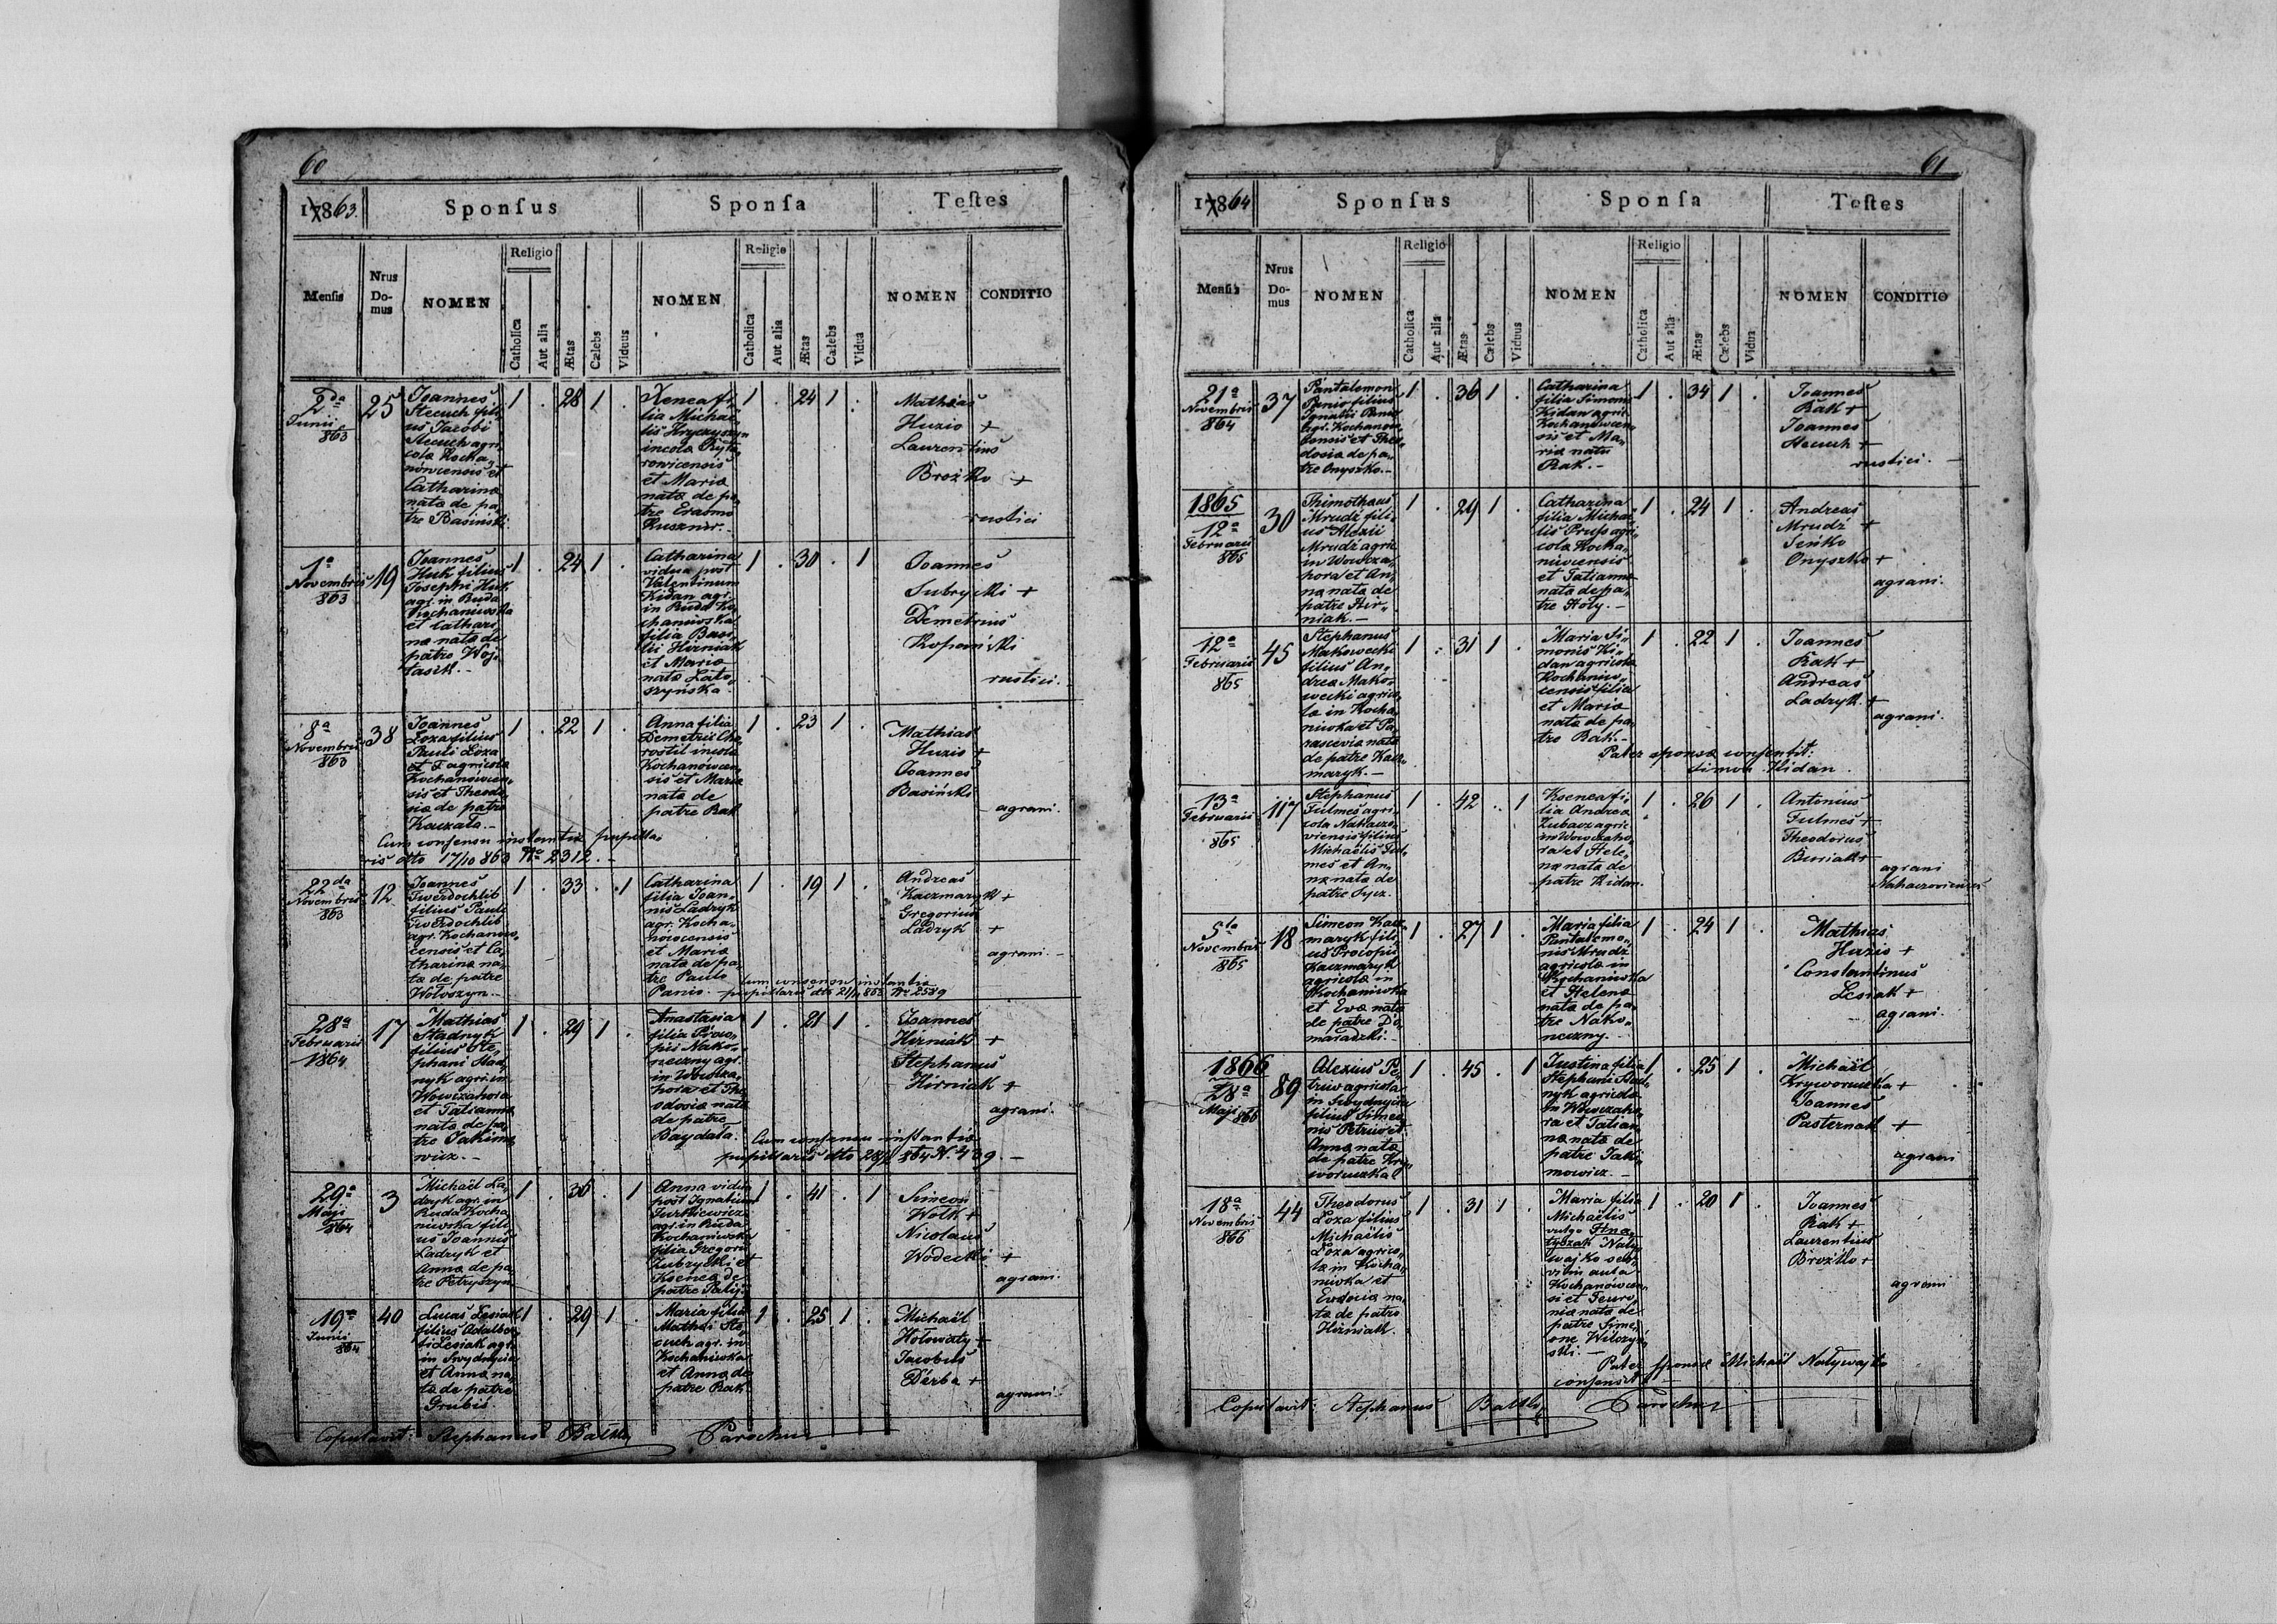 60
1863.
Sponſus
Sponſa
Teſtes
Menſis
Nrus
Do-
mus
NOMEN
Religio
Catholica
Aut alia
Ætas
Cælebs
Viduus
NOMEN
Religio
Catholica
Aut alia
Ætas
Cælebs
Vidua
NOMEN
CONDITIO
2da
Junii
863
25
Joannes
Stecuch fili„
us Jacobi
Stecuch agri„
cola Kocha„
nówcensis et
Catharina
nata de pa„
tre Basiński
1 . 28 1 .
Xenea fi„
lia Michaë„
lis Hryczyszyn
incola Pryta„
rowicensis
et Maria
nata de pa„
tre Erasmo
Kusznir.
1 . 24 1 .
Mathias
Huzio +
Laurentius
Brozko +
rustici
1a
Novembris
863
19
Joannes
Huk filius
Josephi Huk
agr. in Buda
Kochaniwska
et Cathari„
na nata de
patre Woj„
tasik. –
1 . 24 1 .
Catharina
vidua post
Valentinum
Kidan agr.
in Buda Ko„
chaniwska
filia Basi„
lii Hirniak
et Maria
nata Lato„
szyńska
1 . 30 . 1
Joannes
Subrycki +
Demetrius
Kopciński
rustici
8a
Novembris
863
38
Joannes
Łoza filius
Pauli Łoza
et F agricola
Kochanówcen„
sis et Theodo„
sia de patre
Kawzało. –
1 . 22 1 .
Anna filia
Demetrii Che„
rostil incola
Kochanówcen„
sis et Maria
nata de
patre Bak
1 . 23 1 .
Mathias
Huzio +
Joannes
Basiński
agrani.
Cum consensu instantiæ pupilla„
ris dto 17/10 863 No 2312. –
22da
Novembris
863
12
Joannes
Twerdochlib
filius Pauli
Twerdochlib
agr. Kochanow„
censis et Ca„
tharina na„
ta de patre
Wołoszyn. –
1 . 33 . 1
Catharina
filia Joan„
nis Ladryk
agr. Kocha„
nowcensis
et Maria
nata de pa„
tre Paulo
Panio.
1 . 19 1 .
Andreas
Kaczmaryk +
Gregorius
Ladryk +
agrani. –
Cum consensu instantiæ
pupillaris dto 21/11 863 No 2589
28a
Februarii
1864
17
Mathias
Stadnyk
filius Ste„
phani Stad„
nyk agr. in
Wowczahora
et Tatianna
nata de pa„
tre Jakimo„
wicz. –
1 . 29 1 .
Anastasia
filia Proco„
pii Nako„
neczny agr.
in Wowcza„
hora et The„
odosia nata
de patre
Baydała.
1 . 21 1 .
Joannes
Hirniak +
Stephanus
Hirniak +
agrani.
Cum consensu instantiæ
pupillaris dto 28/2 864 N. 439. –
29a
Maji
864
3
Michaël La„
dryk agr. in
Buda Kocha„
niwska fili„
us Joannis
Ladryk et
Anna de pa„
tre Petryszyn
1 . 36 . 1
Anna vidua
post Ignatium
Jurkiewicz
agr. in Buda
Kochaniwska
filia Gregorii
Zubrycki et
Ksenea de
patre Palij
1 . 41 . 1
Simeon
Wolk +
Nicolaus
Wodecki +
agrani.
19a
Junii
864
40
Lucas Lesiak
filius Adalber„
ti Lesiak agr.
in Swydnycia
et Anna na„
ta de patre
Grubis.
1 . 29 1 .
Maria filia
Mathei Ste„
cuch agr. in
Kochaniwka
et Anna de
patre Bak
1 . 25 1 .
Michaël
Hołowaty +
Jacobus
Derba +
agrani.
Copulavit: Stephanus Parochus
61
1864
Sponſus
Sponſa
Teſtes
Menſis
Nrus
Do-
mus
NOMEN
Religio
Catholica
Aut alia
Ætas
Cælebs
Viduus
NOMEN
Religio
Catholica
Aut alia
Ætas
Cælebs
Vidua
NOMEN
CONDITIO
21a
Novembris
864
37
Pantalemon
Panio filius
Ignatii Panio
agr. Kochanow„
censis et Theo„
dosia de pa„
tre Onyszko. –
1 . 36 1 .
Catharina
filia Simonis
Kidan agric.
Kochanowcen„
sis et Ma„
ria nata
Bak. –
1 . 34 1 .
Joannes
Bak +
Joannes
Stecuch +
rustici. –
1865
12a
Februarii
865
30
Thimotheus
Mrudź fili„
us Alexii
Mrudź agric.
in Wowcza„
hora et An„
na nata de
patre Hir„
niak. –
1 . 29 1 .
Catharina
filia Micha„
lis Prus agri„
cola Kocha„
niwcensis
et Tatianna
nata de pa„
tre Hoły. –
1 . 24 1 .
Andreas
Mrudź +
Seńko
Onyszko +
agrani.
12a
Februarii
865
45
Stephanus
Makowecki
filius An„
drea Mako„
wecki agrico„
la in Kocha„
niwka et Pa„
rascevia nata
de patre Kacz„
maryk. –
1 . 31 1 .
Maria Si„
monis Ki„
dan agricola
Kochaniw„
censis filia
et Maria
nata de pa„
tre Bak. –
1 . 22 1 .
Joannes
Bak +
Andreas
Ladryk +
agrani.
Pater sponsæ consentit:
Simon Kidan.
13a
Februarii
865
117
Stephanus
Fulmes agri„
cola Nahaczo„
viensis filius
Michaëlis Ful„
mes et An„
na nata de
patre Sycz.
1 . 42 . 1
Ksenea fi„
lia Andrea
Zubacz agric.
in Wowczaho„
ra et Hele„
na nata de
patre Kidan.
1 . 26 1 .
Antonius
Fulmes +
Theodorus
Busiak +
agrani
Nahaczovienses
5ta
Novembris
865
18
Simeon Kacz„
maryk fili„
us Procopii
Kaczmaryk
agricola in
Kochaniwka
et Eva nata
de patre Do„
maradzki. –
1 . 27 1 .
Maria filia
Pantalemo„
nis Mrudź
agricola in
Kochaniwka
et Helena
nata de pa„
tre Nako„
neczny. –
1 . 24 1 .
Mathias
Huzio +
Constantinus
Lesiak +
agrani.
1866
28a
Maji 866
89
Alexius Pe„
triw agricola
in Swydnycia
filius Simeo„
nis Petriw et
Anna nata
de patre Kry„
woruczka
1 . 45 . 1
Justina filia
Stephani Stad„
nyk agricola
in Wowczaho„
ra et Tatian„
na nata de
patre Jaki„
mowicz. –
1 . 25 1 .
Michaël
Kryworuczka +
Joannes
Pasternak +
agrani
18a
Novembris
866
44
Theodorus
Łoza filius
Michaëlis
Łoza agrico„
la in Kocha„
niwka et
Eudocia na„
ta de patre
Hirniak.
1 . 31 1 .
Maria filia
Michaëlis
vulgo Hna„
tyszak Naly„
wajko
Kochanówcen„
si et Feuro„
nia nata de
patre Sime„
one Wilczyń„
ski. –
1 . 20 1 .
Joannes
Bak +
Laurentius
Brozko +
agrani
Pater sponsæ Michaël Nalywajko
consensit. –
Copulavit: Stephanus Parochus